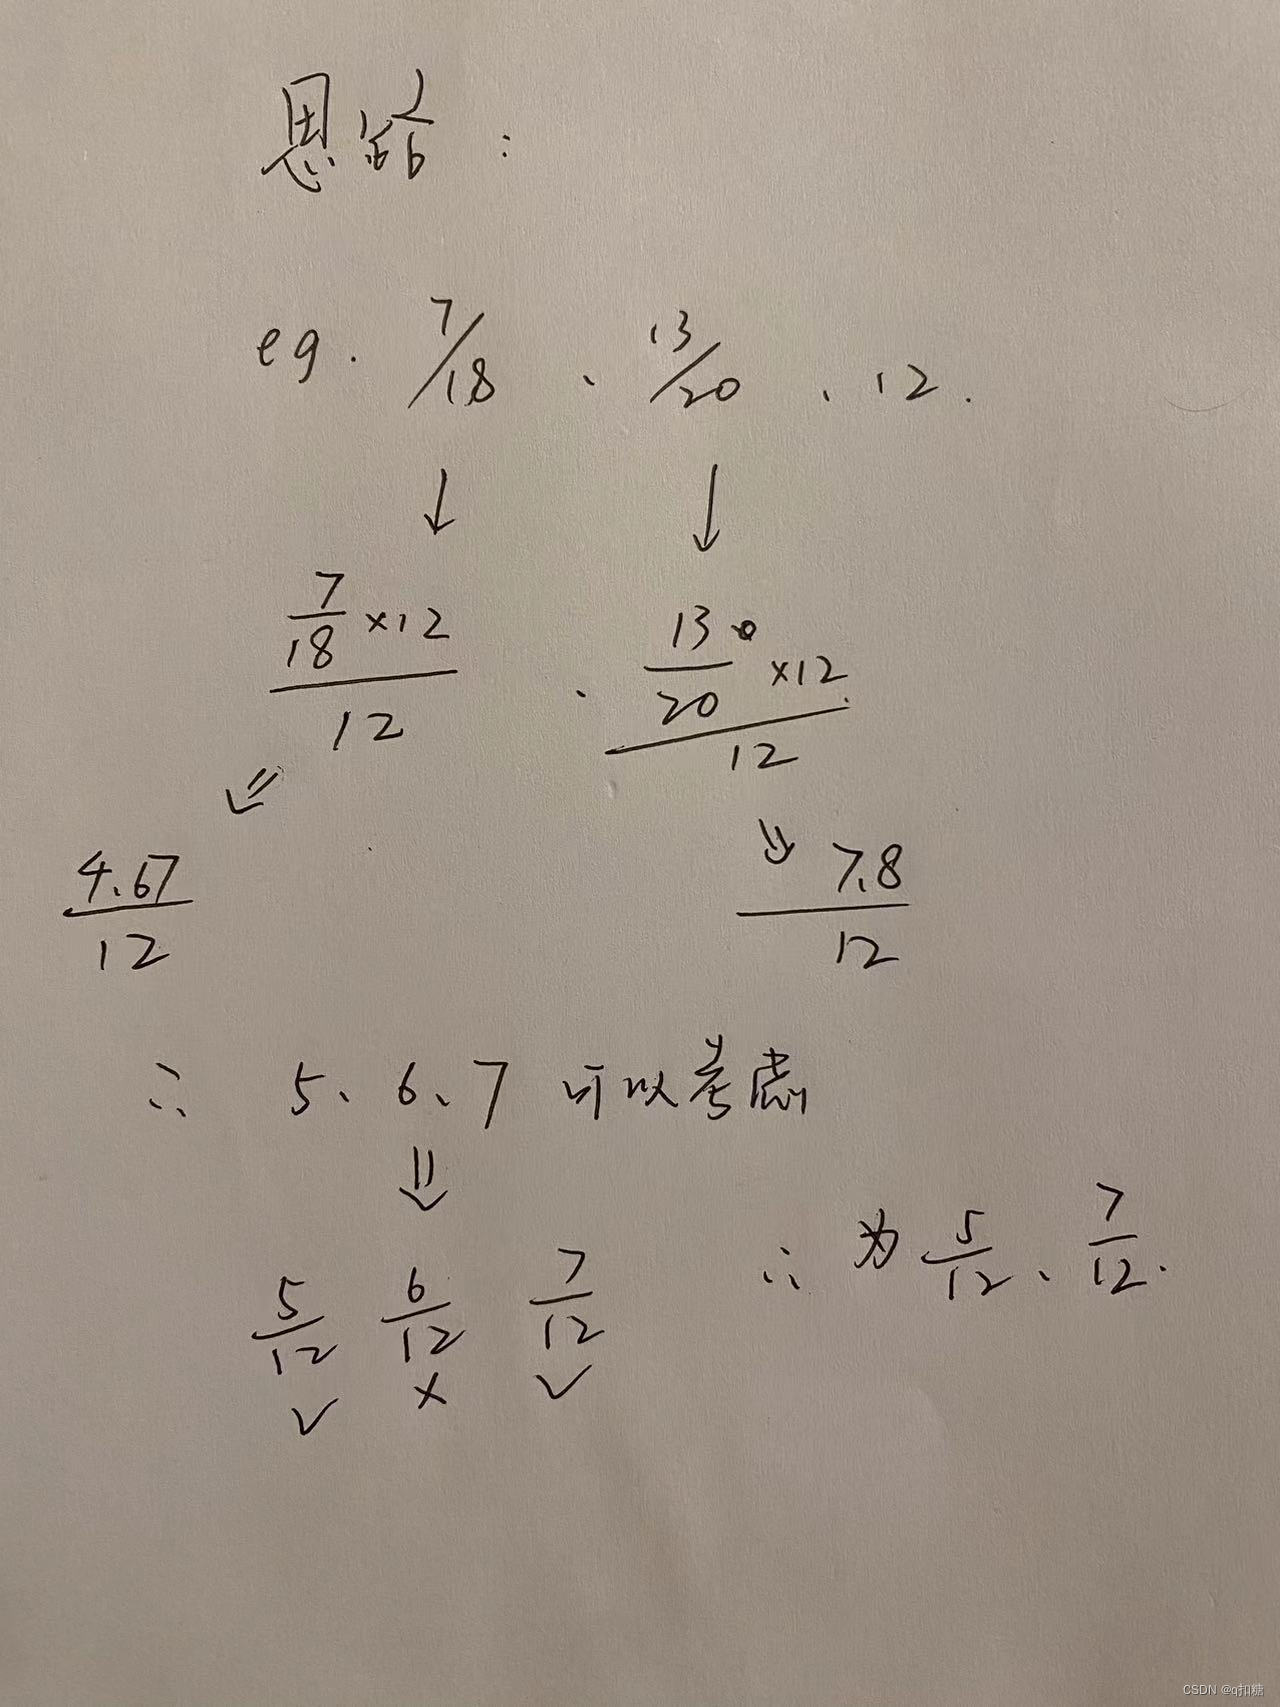 思路：
eg. 7/18、13/20、12.
↓ ↓
7/18×12/12、13/20×12/12
⇙ ⇘
4.67/12 7.8/12
∴ 5、6、7 可以考虑
⇓
5/12 6/12 7/12 ∴ 为 5/12、7/12.
✓ × ✓
CSDN @q扣糖